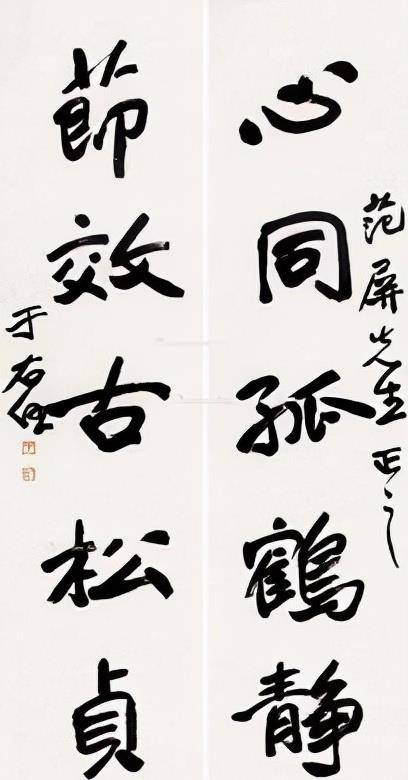 范屏先生正之
心同孤鶴靜
節效古松貞
于右任